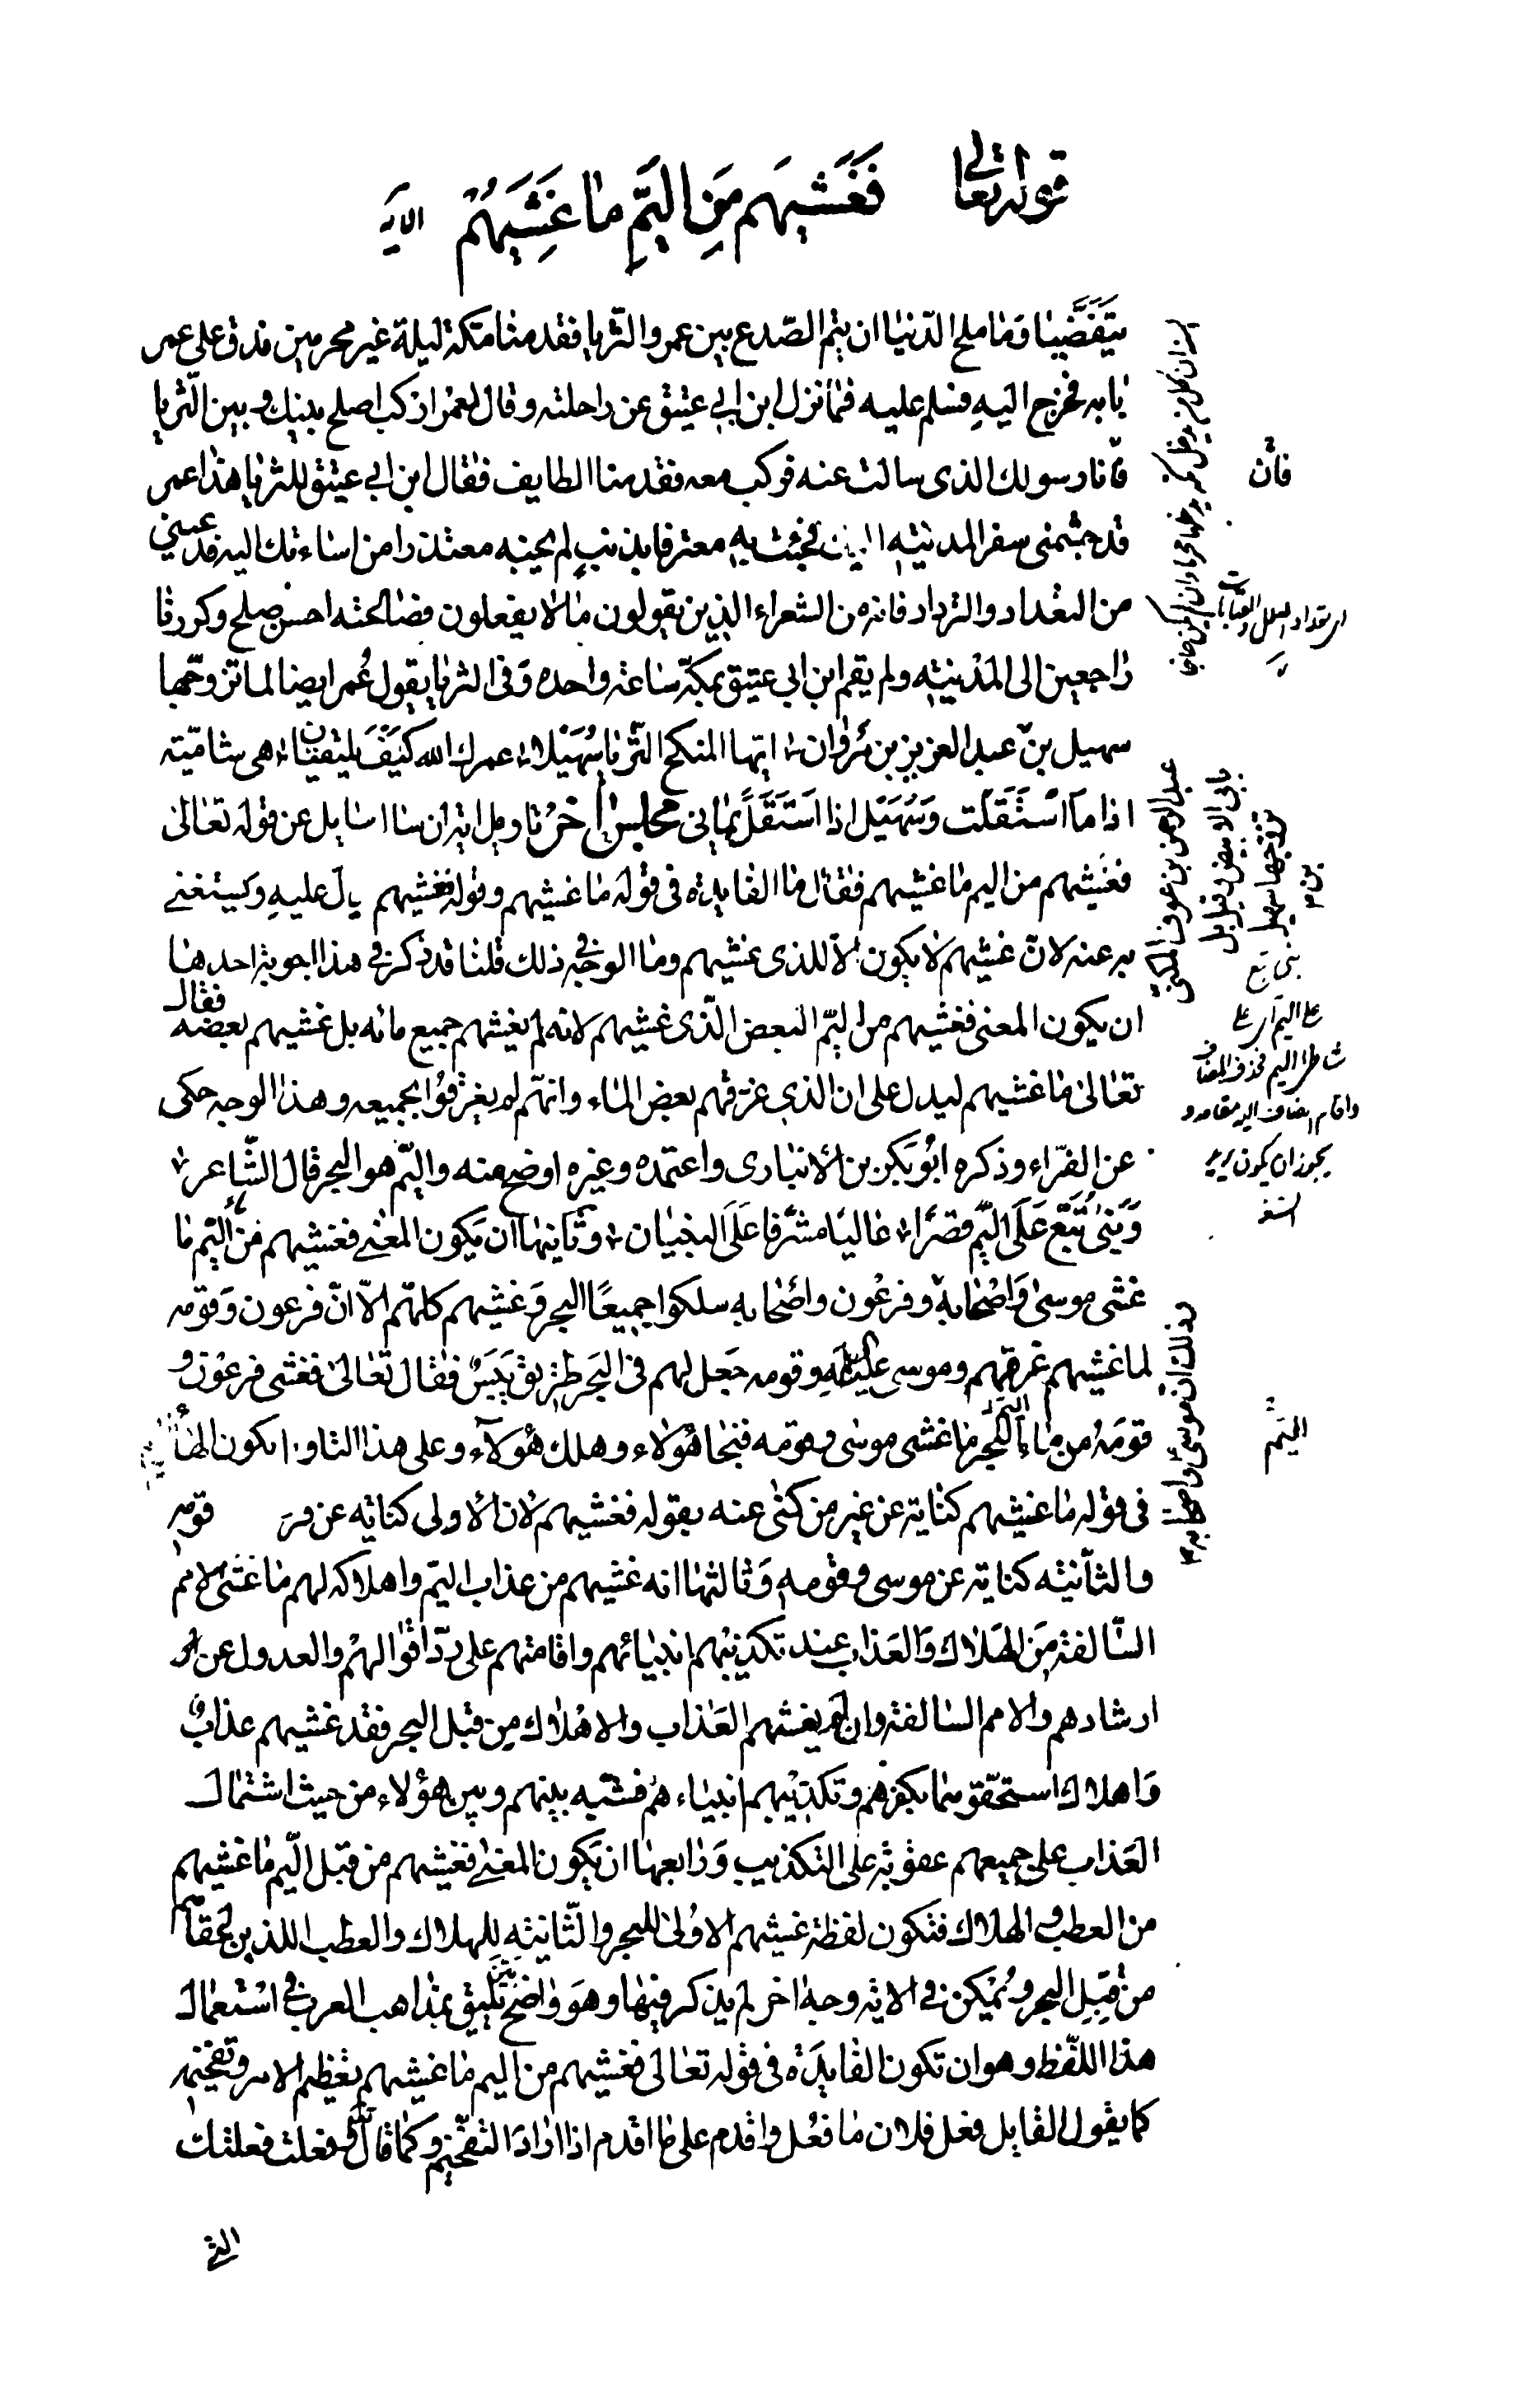 قوله تعالى فَغَشيَهم مَنِ اليَمِّ ما غَشِيَهُم الايه
يتقضيا وما ملح الدنيا ان يتم الصدع بين عمر والثريا فقدمنا مكة ليلة غير محرمين فدق على عمر
بابه فخرج اليه فسلم عليه فما نزل ابن ابي عتيق عن راحلته وقال لعمر اركب اصلح بينك وبين الثريا
فانا رسولك الذى سالت عنه فركب معه فقدمنا الطايف فقال ابن ابي عتيق للثريا هذا عمر
قد جشمنى سفر المدينة فجئت به معترفا بذنب لم يجنه معتذرا من اساءتك اليه فدعينى
من التعداد والترداد فانه من الشعراء الذين يقولون ما لا يفعلون فصالحته احسن صلح وكررنا
راجعين الى المدينه ولم يقم ابن ابى عتيق بمكة ساعة واحده وفى الثريا يقول عمر ايضا لما تزوجها
سهيل بن عبد العزيز بن مروان ايها المنكح الثريا سهيلا عمرك الله كيف يلتقيان هى شامية
اذا ما استقلت وسهيل اذا استقل يمانى مجلس اخر تاويل اية ان سال سايل عن قوله تعالى
فغشيهم من اليم ما غشيهم فقال ما الفايدة فى قوله ما غشيهم وقوله فغشيهم يدل عليه ويستغنى
به عنه لان غشيهم لا يكون الا للذى غشيهم وما الوجه فى ذلك قلنا قد ذكر فى هذا اجوبة احدها
ان يكون المعنى فغشيهم من اليم البعض الذى غشيهم لانه لم يغشهم جميع مائه بل غشيهم بعضه فقال
تعالى ما غشيهم ليدل على ان الذى غرقهم بعض الماء وانهم لم يغرقوا بجميعه وهذا الوجه حكى
عن الفراء وذكره ابو بكر بن الانبارى واعتمده وغيره اوضح منه واليم هو البحر قال الشاعر
وبنى تبع على اليم قصرا عاليا مشرفا على البنيان وثانيها ان يكون المعنى فغشيهم من اليم ما
غشى موسى واصحابه وفرعون واصحابه سلكوا جميعا البحر وغشيهم كلهم الا ان فرعون وقومه
لما غشيهم غرقهم وموسى عليه السلم وقومه جعل لهم فى البحر طريق يبس فقال تعالى فغشى فرعون و
قومه من ماء البحر ما غشى موسى وقومه فنجا هؤلاء وهلك هؤلاء وعلى هذا التاويل يكون الهاء
فى قوله ما غشيهم كناية عن غير من كنى عنه بقوله فغشيهم لان الاولى كنايه عن قومه
والثانيه كناية عن موسى وقومه وثالثها انه غشيهم من عذاب اليم واهلاكه لهم ما غشى الامم
السالفة من الهلاك والعذاب عند تكذيبهم انبيائهم واقامتهم على رد اقوالهم والعدول عن
ارشادهم والامم السالفة وان لم يغشهم العذاب والاهلاك من قبل البحر فقد غشيهم عذاب
واهلاك استحقوهما بكفرهم وتكذيبهم انبياءهم فشبه بينهم وبين هؤلاء من حيث اشتمال
العذاب على جميعهم عقوبة على التكذيب ورابعها ان يكون المعنى فغشيهم من قبل اليم ما غشيهم
من العطب والهلاك فتكون لفظة غشيهم الاولى للبحر والثانيه للهلاك والعطب اللذين لحقاهم
من قبل البحر ويمكن فى الاية وجه اخر لم يذكر فيها وهو واضح يليق بمذاهب العرب فى استعمال
هذا اللفظ وهو ان تكون الفايدة فى قوله تعالى فغشيهم من اليم ما غشيهم تعظيم الامر وتفخيمه
كما يقول القايل فعل فلان ما فعل واقدم على ما اقدم اذا اراد التفخيم وكما قال وفعلت فعلتك
التى
فان
عبد الرحمن بن عوف
تزوجها سهيل
بنى تبع
على اليم اى على
شاطئ اليم فحذف المضاف
واقام المضاف اليه مقامه و
يجوز ان يكون
اليم